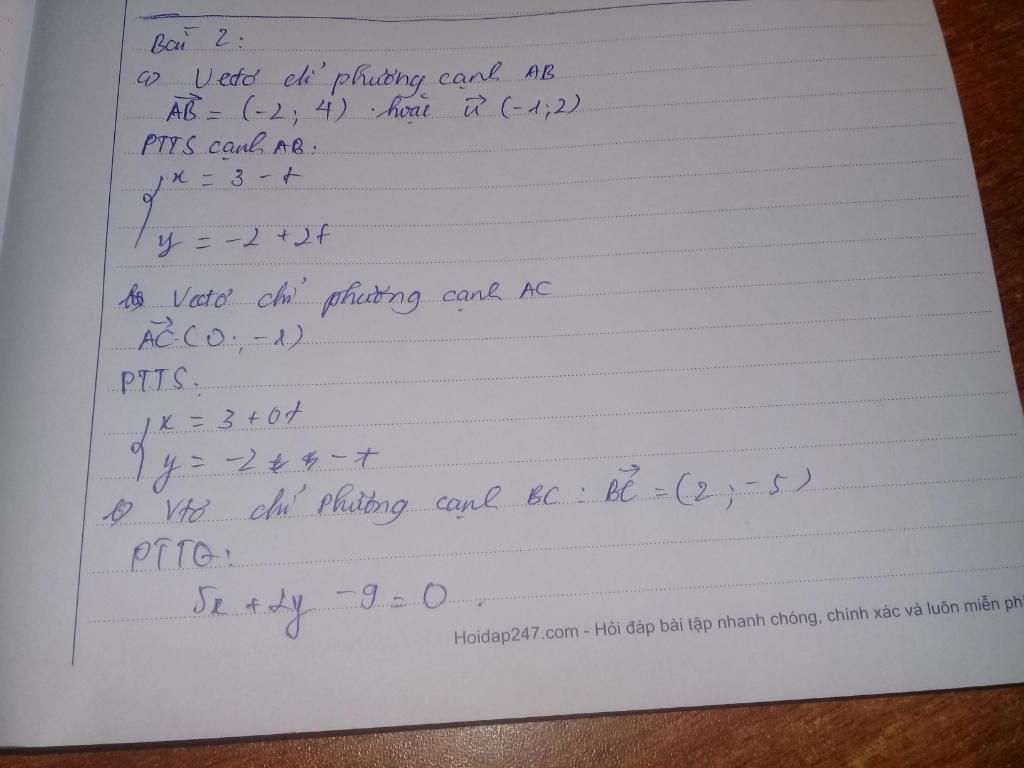 Bài 2:
a) Vectơ chỉ phương cạnh AB
AB = (-2; 4) hoặc u (-1;2)
PTTS cạnh AB:
x = 3 - t
y = -2 + 2t
Vectơ chỉ phương cạnh AC
AC (0; -1)
PTTS:
x = 3 + 0t
y = -2 - t
b) Vtơ chỉ phương cạnh BC : BC = (2; -5)
PTTQ:
5x + 2y - 9 = 0.
Hoidap247.com - Hỏi đáp bài tập nhanh chóng, chính xác và luôn miễn ph